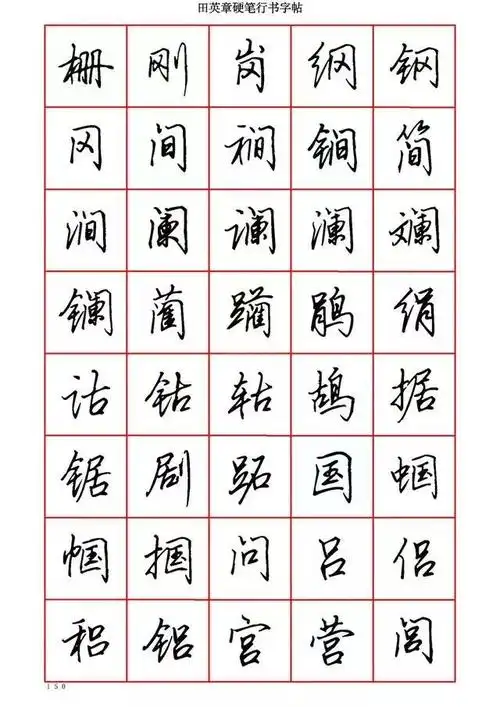 田英章硬笔行书字帖
栅刚岗纲钢
冈间裥锏简
涧阑谰澜斓
镧蔺躏鹃绢
诂钴轱鸪据
锯剧跖国蝈
帼掴问吕侣
稆铝宫营闾
150